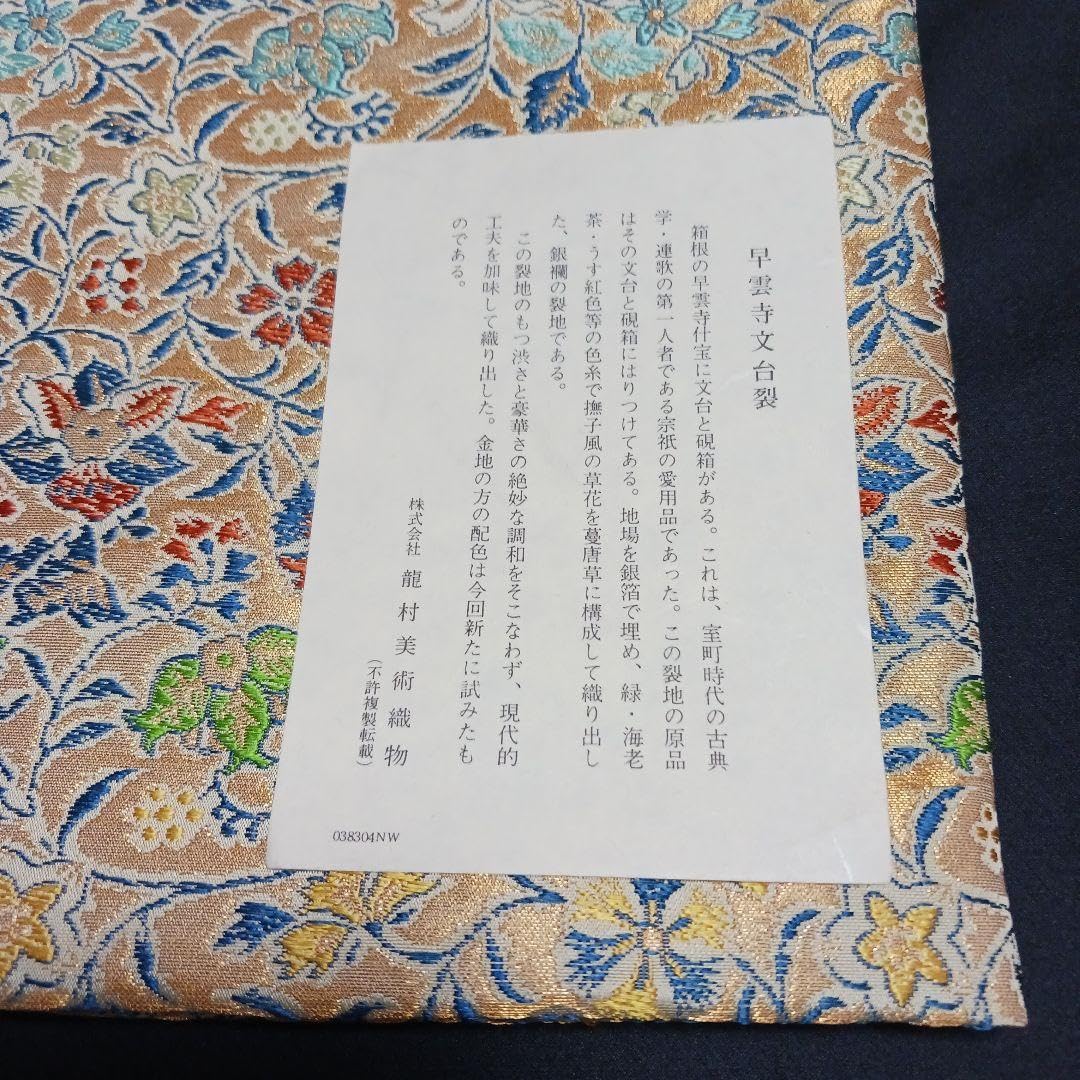 早雲寺文台裂
箱根の早雲寺什宝に文台と硯箱がある。これは、室町時代の古典
学・連歌の第一人者である宗祇の愛用品であった。この裂地の原品
はその文台と硯箱にはりつけてある。地場を銀箔で埋め、緑・海老
茶・うす紅色等の色糸で撫子風の草花を蔓唐草に構成して織り出し
た、銀襴の裂地である。
この裂地のもつ渋さと豪華さの絶妙な調和をそこなわず、現代的
工夫を加味して織り出した。金地の方の配色は今回新たに試みたも
のである。
株式会社 龍村美術織物
(不許複製転載)
038304NW